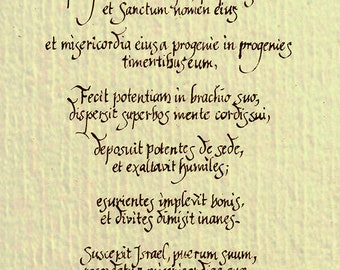 et Sanctum nomen eius
et misericordia eius a progenie in progenies
timentibus eum,
Fecit potentiam in brachio suo,
dispersit superbos mente cordis sui,
deposuit potentes de sede,
et exaltavit humiles;
esurientes implevit bonis,
et divites dimisit inanes.
Suscepit Israel, puerum suum,